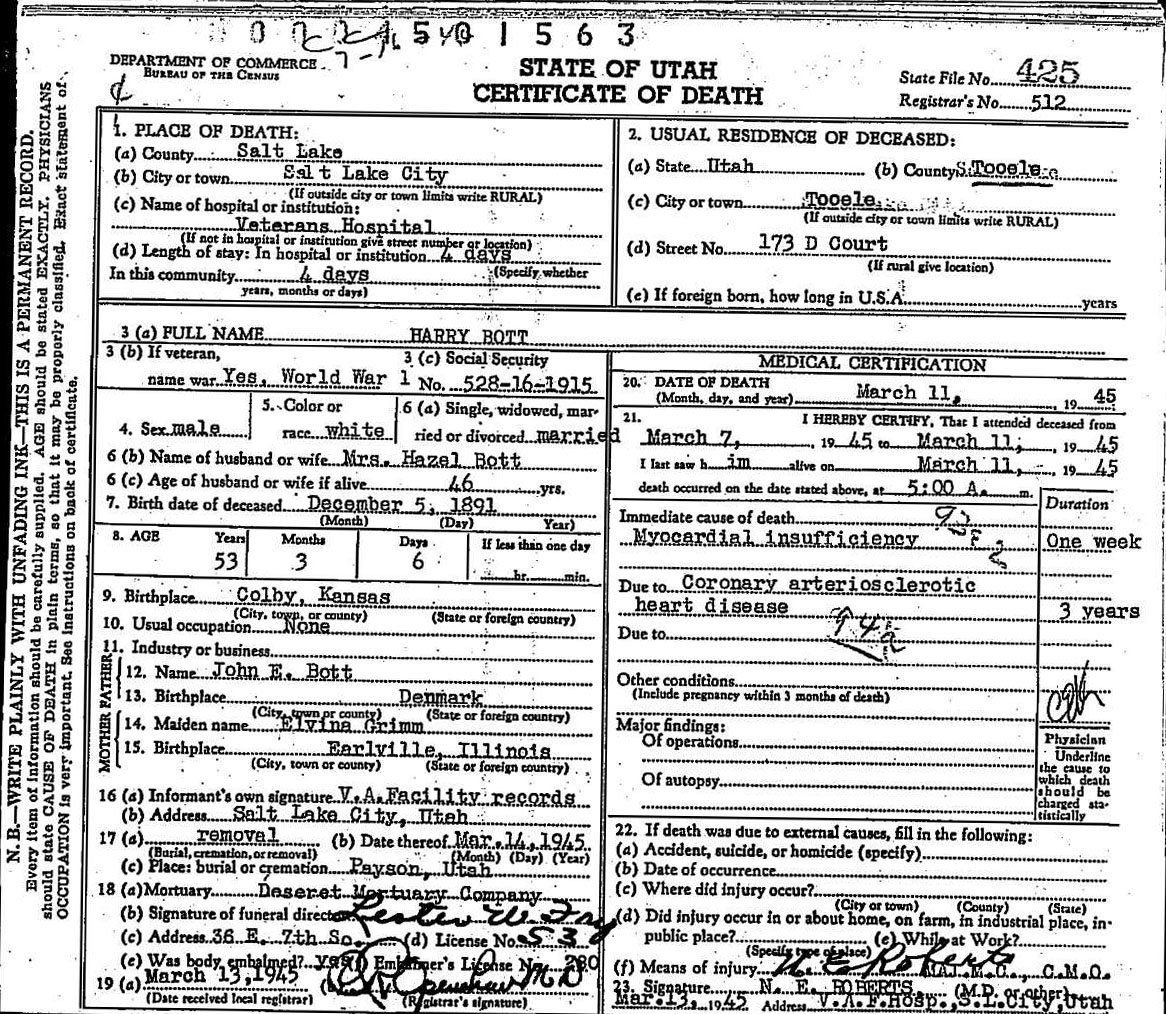 1 5 6 3
DEPARTMENT OF COMMERCE
BUREAU OF THE CENSUS
STATE OF UTAH
CERTIFICATE OF DEATH
State File No. 425
Registrar's No. 512
N. B.—WRITE PLAINLY WITH UNFADING INK—THIS IS A PERMANENT RECORD.
Every item of information should be carefully supplied. AGE should be stated EXACTLY. PHYSICIANS
should state CAUSE OF DEATH in plain terms, so that it may be properly classified. Exact statement of
OCCUPATION is very important. See instructions on back of certificate.
1. PLACE OF DEATH:
(a) County Salt Lake
(b) City or town Salt Lake City
(If outside city or town limits write RURAL)
(c) Name of hospital or institution:
Veterans Hospital
(If not in hospital or institution give street number or location)
(d) Length of stay: In hospital or institution 4 days
In this community 4 days (Specify whether
years, months or days)
2. USUAL RESIDENCE OF DECEASED:
(a) State Utah (b) County Tooele
(c) City or town Tooele
(If outside city or town limits write RURAL)
(d) Street No. 173 D Court
(If rural give location)
(e) If foreign born, how long in U.S.A. years
3 (a) FULL NAME HARRY BOTT
3 (b) If veteran,
name war Yes, World War 1
3 (c) Social Security
No. 528-16-1915
4. Sex male
5. Color or
race white
6 (a) Single, widowed, mar-
ried or divorced married
6 (b) Name of husband or wife Mrs. Hazel Bott
6 (c) Age of husband or wife if alive 46 yrs.
7. Birth date of deceased December 5, 1891
(Month) (Day) Year)
8. AGE Years Months Days If less than one day
53 3 6 hr. min.
9. Birthplace Colby, Kansas
(City, town, or county) (State or foreign country)
10. Usual occupation None
11. Industry or business
FATHER
12. Name John E. Bott
13. Birthplace Denmark
(City, town or county) (State or foreign country)
MOTHER
14. Maiden name Elvina Grimm
15. Birthplace Earlville, Illinois
(City, town or county) (State or foreign country)
16 (a) Informant's own signature V.A.Facility records
(b) Address Salt Lake City, Utah
17 (a) removal (b) Date thereof Mar.14,1945
(Burial, cremation, or removal) (Month) (Day) (Year)
(c) Place: burial or cremation Payson, Utah
18 (a) Mortuary Deseret Mortuary Company
(b) Signature of funeral director Lester W Fry
(c) Address 36 E. 7th So. (d) License No. 53
(e) Was body embalmed? yes Embalmer's License No. 280
19 (a) March 13, 1945 Openshaw M D
(Date received local registrar) (Registrar's signature)
MEDICAL CERTIFICATION
20. DATE OF DEATH
(Month, day, and year) March 11, 19 45
21. I HEREBY CERTIFY, That I attended deceased from
March 7, 19 45 to March 11, 19 45
I last saw h im alive on March 11, 19 45
death occurred on the date stated above, at 5:00 A. m.
Duration
Immediate cause of death
Myocardial insufficiency One week
Due to Coronary arteriosclerotic
heart disease 3 years
Due to 94a
Other conditions
(Include pregnancy within 3 months of death)
Major findings:
Of operations
Of autopsy
Physician
Underline
the cause to
which death
should be
charged sta-
tistically
22. If death was due to external causes, fill in the following:
(a) Accident, suicide, or homicide (specify)
(b) Date of occurrence
(c) Where did injury occur?
(City or town) (County) (State)
(d) Did injury occur in or about home, on farm, in industrial place, in-
public place? (e) While at Work?
(Specify type of place)
(f) Means of injury N. E. Roberts MAJ.M.C., C.M.O.
23. Signature N. E. ROBERTS (M.D. or other)
Mar.13, 1945 Address V.A.F.Hosp., S.L.City, Utah